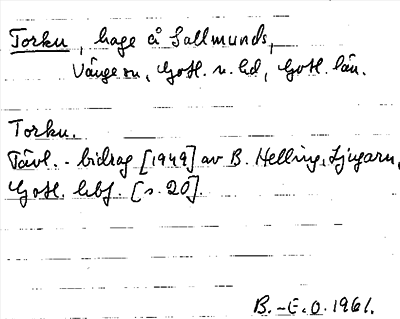 Torku, hage å Sallmunds,
Vänge sn, Gotl. n. hd, Gotl. län.
Torku.
Tävl.-bidrag [1949] av B. Helling, Ljugarn,
Gotl. hbf. [s. 20].
B.-E. O. 1961.